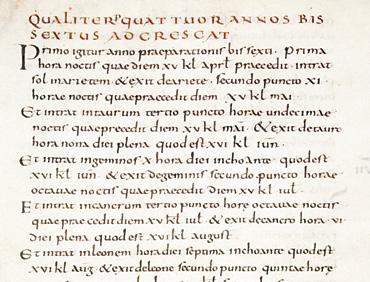 QUALITER P QUATTUOR ANNOS BIS
SEXTUS ADCRESCAT
Primo igitur anno praeparationis bissexti. Prima
hora noctis quae diem xv kl aprl praecedit. intrat
sol inarietem. & exit deariete. secundo puncto xi.
horae noctis quae praecedit diem xv kl mai
Et intrat intaurum tertio puncto horae undecimae
noctis quae precedit diem xv kl mai. & exit detauro
hora nona diei plena quod est xvi kl iun.
Et intrat ingeminos x hora diei inchoante quod est
xvi kl iun & exit degeminis secundo puncto horae
octauae noctis quae praecedit diem xv kl iul.
Et intrat incancrum tertio puncto hore octauae noctis
quae praecedit diem xv kl iul & exit decancro hora vi
diei plena quod est xvi kl august
Et intrat inleonem hora diei septima inchoante quod est
xvi kl aug & exit deleone secundo puncto quintae horae